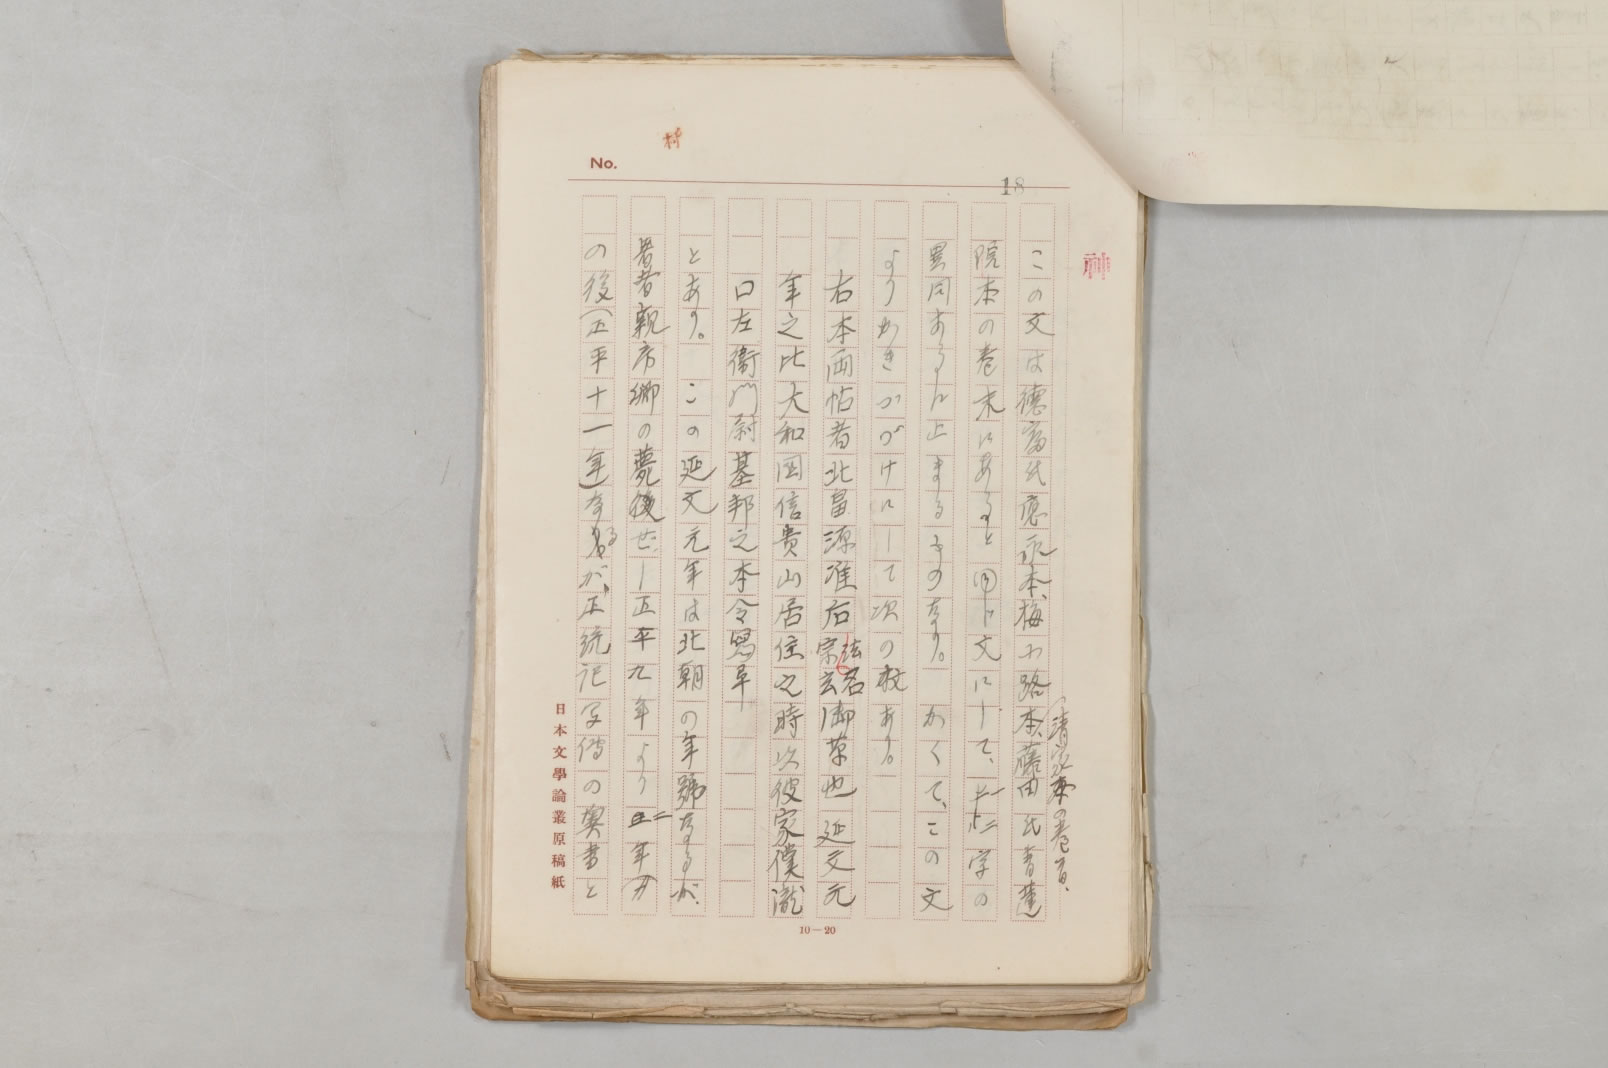 No.
18
この文は德富氏應永本、梅小路本、藤田氏青蓮
清家本の巻首、
院本の巻末にあるものと同じ文にして、二三字の
異同あるに止まるものなり。かくて、この文
よりかきつゞけにして次の跋あり。
右本両帖者北畠源准后法名宗玄御草也延文元
年之比大和国信貴山居住之時以彼家僕瀧
口左衛門尉基邦之本令写畢
とあり。この延文元年は北朝の年號なるが、
著者親房卿の薨後せし正平九年より二年
の後(正平十一年)なるが、正統記写傳の奥書と
日本文學論叢原稿紙
10—20